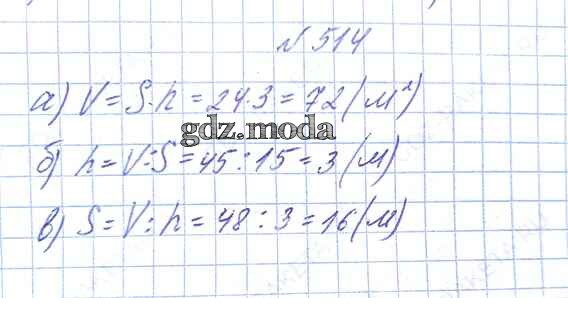 №514
а) V = S·h = 24·3 = 72 (м²)
gdz.moda
б) h = V:S = 45 : 15 = 3 (м)
в) S = V : h = 48 : 3 = 16 (м)